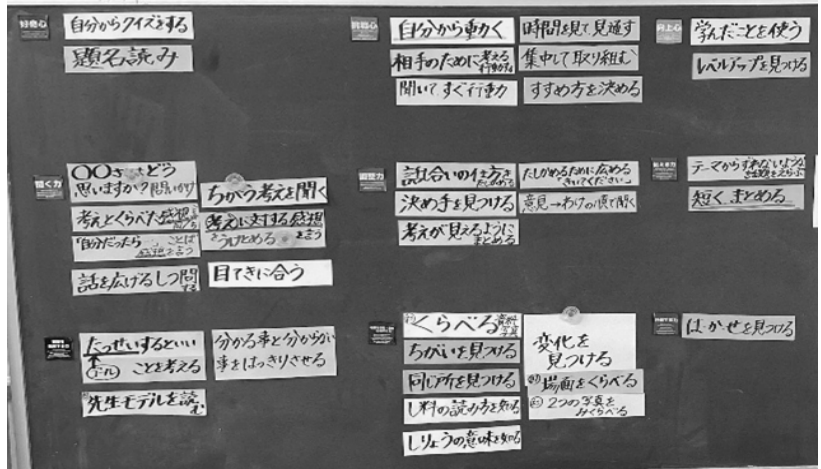 好奇心
自分からクイズをする
題名読み
挑戦心
自分から動く
相手のために考える
行動する
聞いてすぐ行動
時間を見て見通す
集中して取り組む
すすめ方を決める
向上心
学んだことを使う
レベルアップを見つける
聴く力
〇〇さんはどう
思いますか?問いかけ
考えとくらべた感想
"自分だったら
ことば
感想を言う
話を広げるしつ問
ちがう考えを聞く
考えに対する感想
をうけとめる を言う
目てきに合う
調整力
話し合いの仕方を
たしかめる
決め手を見つける
考えが見えるように
まとめる
たしかめるために広める
きいてください
意見→わけの順で聞く
伝える力
テーマからずれないような
話題をえらぶ
短くまとめる
たっせいするといい
ゴール
ことを考える
先生モデルを読
む
分かる事と分からない
事をはっきりさせる
くらべる 資料
写真
ちがいを見つける
同じ所を見つける
し料の読み方を知る
しりょうの意味を知る
変化を
見つける
場面をくらべる
2つの写真を
みくらべる
は・か・せを見つける